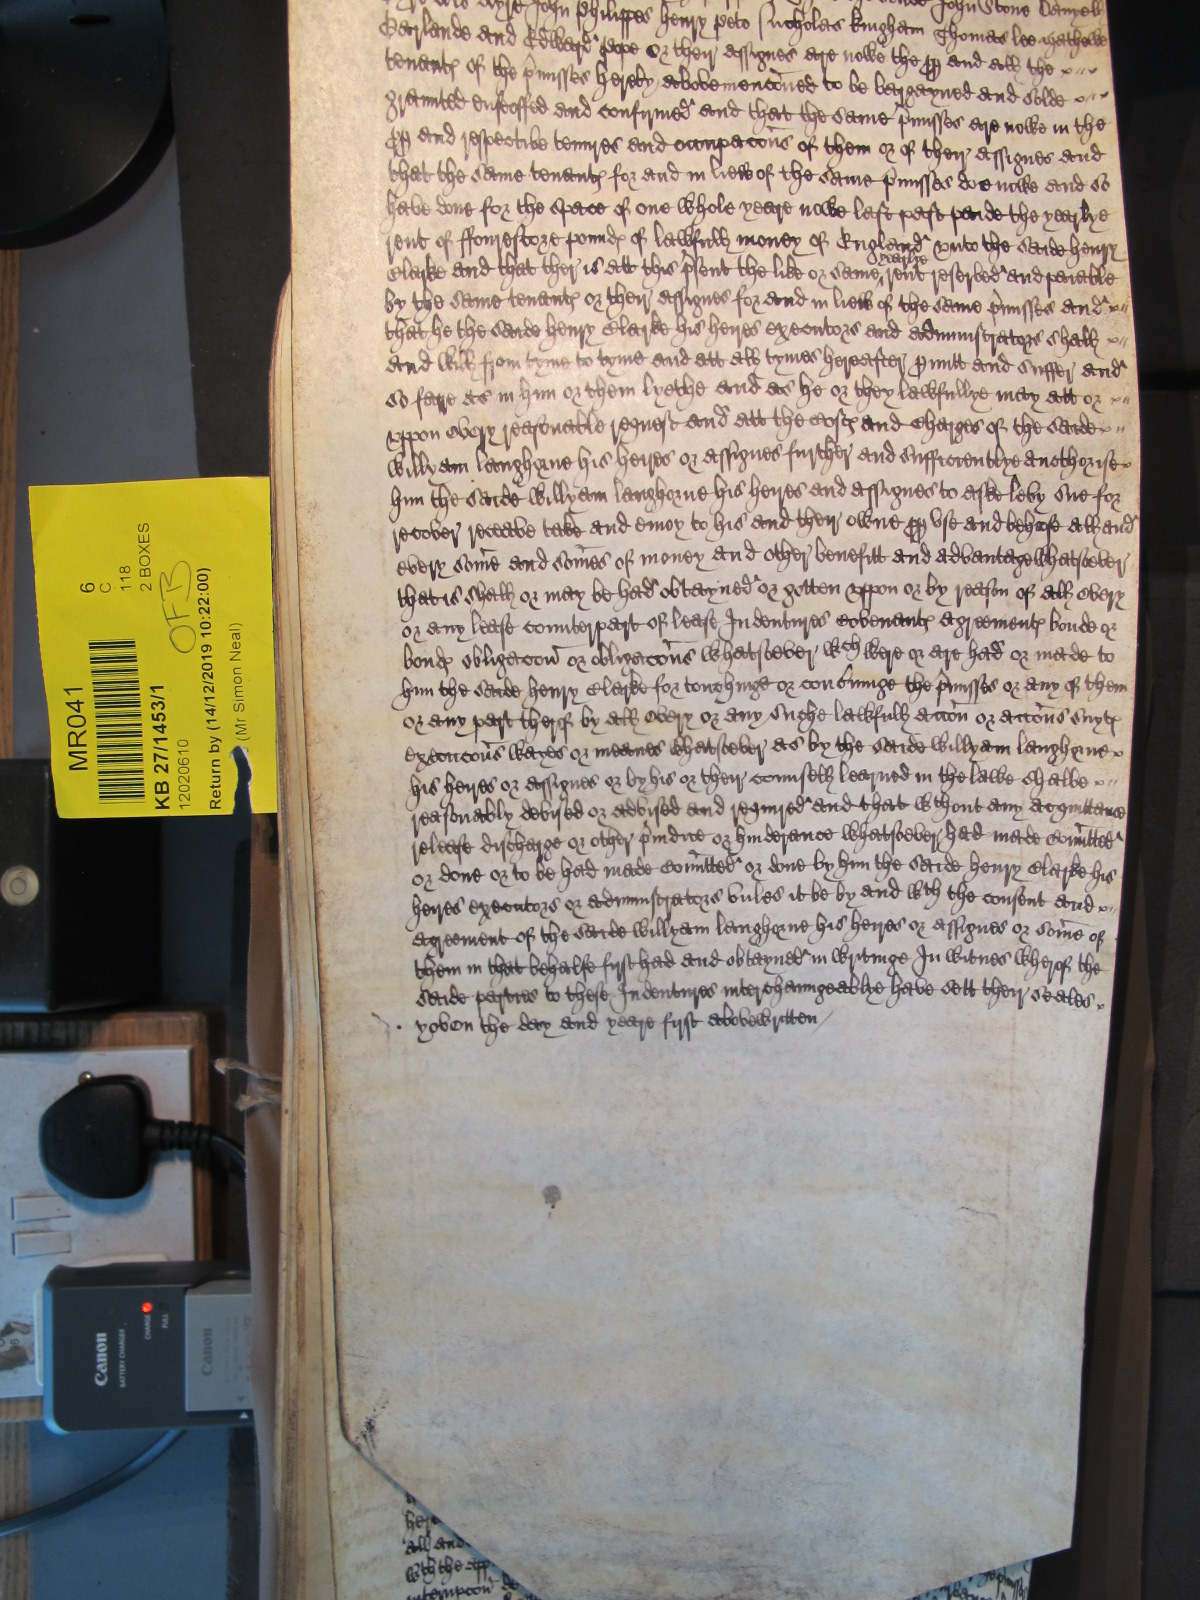 John Philippes henry peto Nicholas kingham Thomas lee mathewe
Garlande and Edward pope or their assignes are nowe the pp and all the
tenantꝭ of the p̃misses hereby abovemenc̃oned to be bargayned and solde
graunted enfeoffed and confirmed and that the same p̃misses are nowe in the
pp and respective tenures and occupac̃ons of them or of their assignes and
that the same tenantꝭ for and in liew of the same p̃misses doe nowe and so
have done for the space of one whole yeare nowe last past paide the yearlye
rent of ffowrescore poundꝭ of lawfull money of England vnto the saide henry
Clarke and that ther is att this p̃sent the like or same yearlye rent reserved and paiable
by the same tenantꝭ or their assignes for and in liew of the same p̃misses and
that he the saide henry Clarke his heires executors and administrators shall
and will from tyme to tyme and att all tymes hereafter p̲mitt and suffer and
so farre as in him or them lyethe and as he or they lawfullye may att or
vppon every reasonable request and att the costꝭ and charges of the saide
willyam langhorne his heires or assignes further and sufficientlye authorise
him the saide willyam langhorne his heires and assignes to aske levy sue for
recover receave take and enioy to his and their owne pp vse and behoofe all and
every som̃e and som̃es of money and other benefitt and advantage whatsoever
that is shall or may be had obtayned or gotten vppon or by reason of all every
or any lease counterpart of lease Indentures covenantꝭ agreementꝭ bonde or
bondꝭ obligac̃on or obligac̃ons whatsoever wch were or are had or made to
him the saide henry Clarke for touchinge or conc̃ninge the p̃misses or any of them
or any part therof by all every or any suche lawfull acc̃on or acc̃ons suytꝭ
execuc̃ons wayes or meanes whatsoever as by the saide willyam langhorne
his heires or assignes or by his or their counsell learned in the lawe shalbe
reasonably devised or advised and required and that wthout any acquittance
release discharge or other p̲iudice or hinderance whatsoever had made com̃itted
or done or to be had made com̃itted or done by him the saide henry Clarke his
heires executors or administrators vnles it be by and wth the consent and
agreement of the saide willyam langhorne his heires or assignes or some of
them in that behalfe first had and obtayned in writinge In witnes wherof the
saide parties to these Indentures interchaungeablye have sett their seales
yoven the day and yeare first abovewritten
MR041
6
C
118
2 BOXES
OFB
KB 27/1453/1
12020610
Return by (14/12/2019 10:22:00)
(Mr Simon Neal)
Canon
BATTERY CHARGER
CHARGE
FULL
Canon
all and